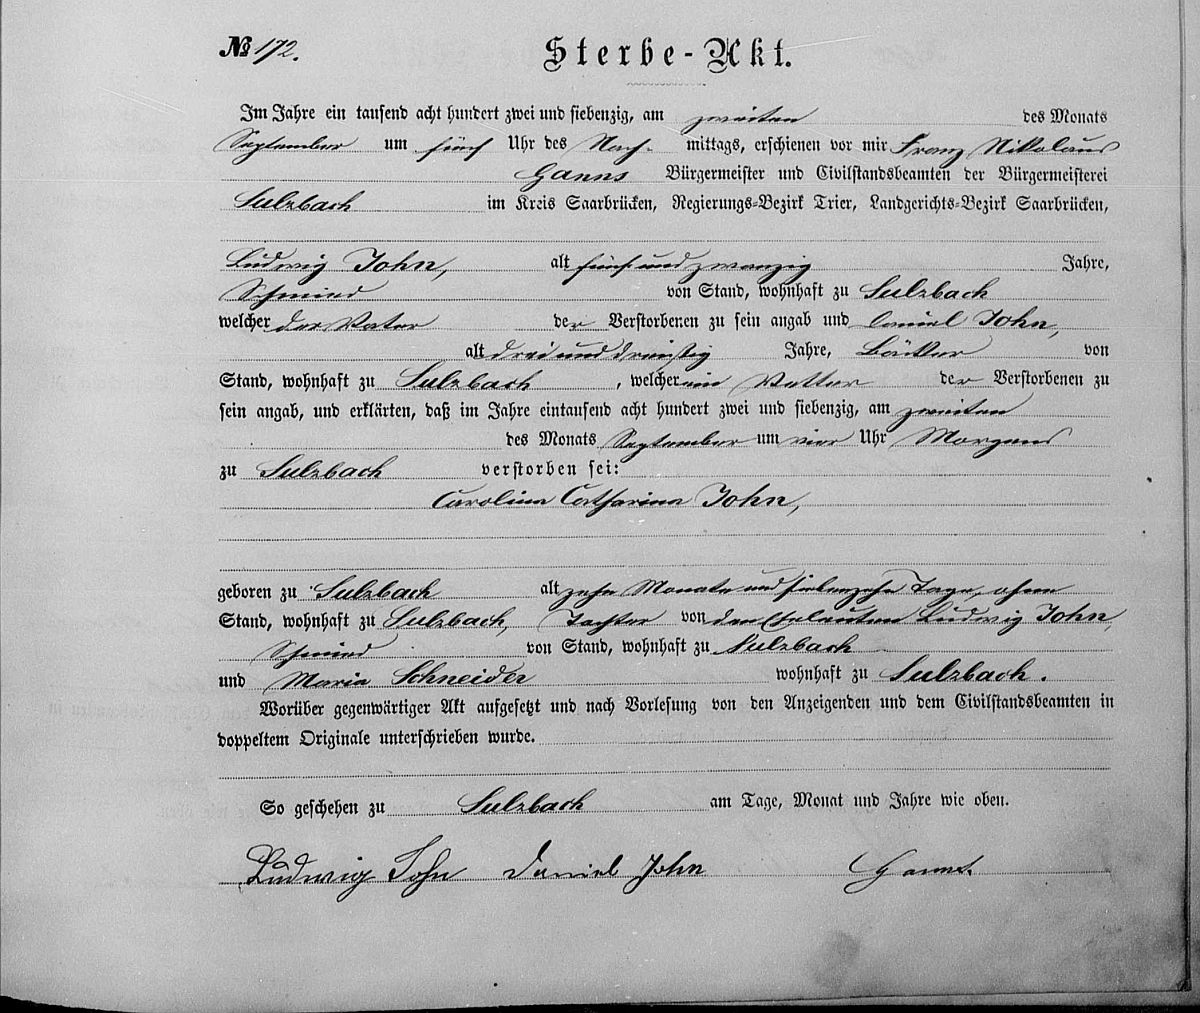 № 172.
Sterbe-Akt.
Im Jahre ein tausend acht hundert zwei und siebenzig, am zweiten des Monats
September um fünf Uhr des Nach- mittags, erschienen vor mir Franz Nikolaus
Ganns Bürgermeister und Civilstandsbeamten der Bürgermeisterei
Sulzbach im Kreis Saarbrücken, Regierungs-Bezirk Trier, Landgerichts-Bezirk Saarbrücken,
Ludwig John, alt fünf und zwanzig Jahre,
Schmied von Stand, wohnhaft zu Sulzbach
welcher der Vater der Verstorbenen zu sein angab und Daniel John,
alt drei und dreißig Jahre, Bäcker von
Stand, wohnhaft zu Sulzbach, welcher ein Vetter der Verstorbenen zu
sein angab, und erklärten, daß im Jahre eintausend acht hundert zwei und siebenzig, am zweiten
des Monats September um vier Uhr Morgens
zu Sulzbach verstorben sei:
Carolina Catharina John,
geboren zu Sulzbach alt zehn Monate und siebenzehn Tage, ohne
Stand, wohnhaft zu Sulzbach, Tochter von den Eheleuten Ludwig John,
Schmied von Stand, wohnhaft zu Sulzbach
und Maria Schneider wohnhaft zu Sulzbach.
Worüber gegenwärtiger Akt aufgesetzt und nach Vorlesung von den Anzeigenden und dem Civilstandsbeamten in
doppeltem Originale unterschrieben wurde.
So geschehen zu Sulzbach am Tage, Monat und Jahre wie oben.
Ludwig John Daniel John Ganns.